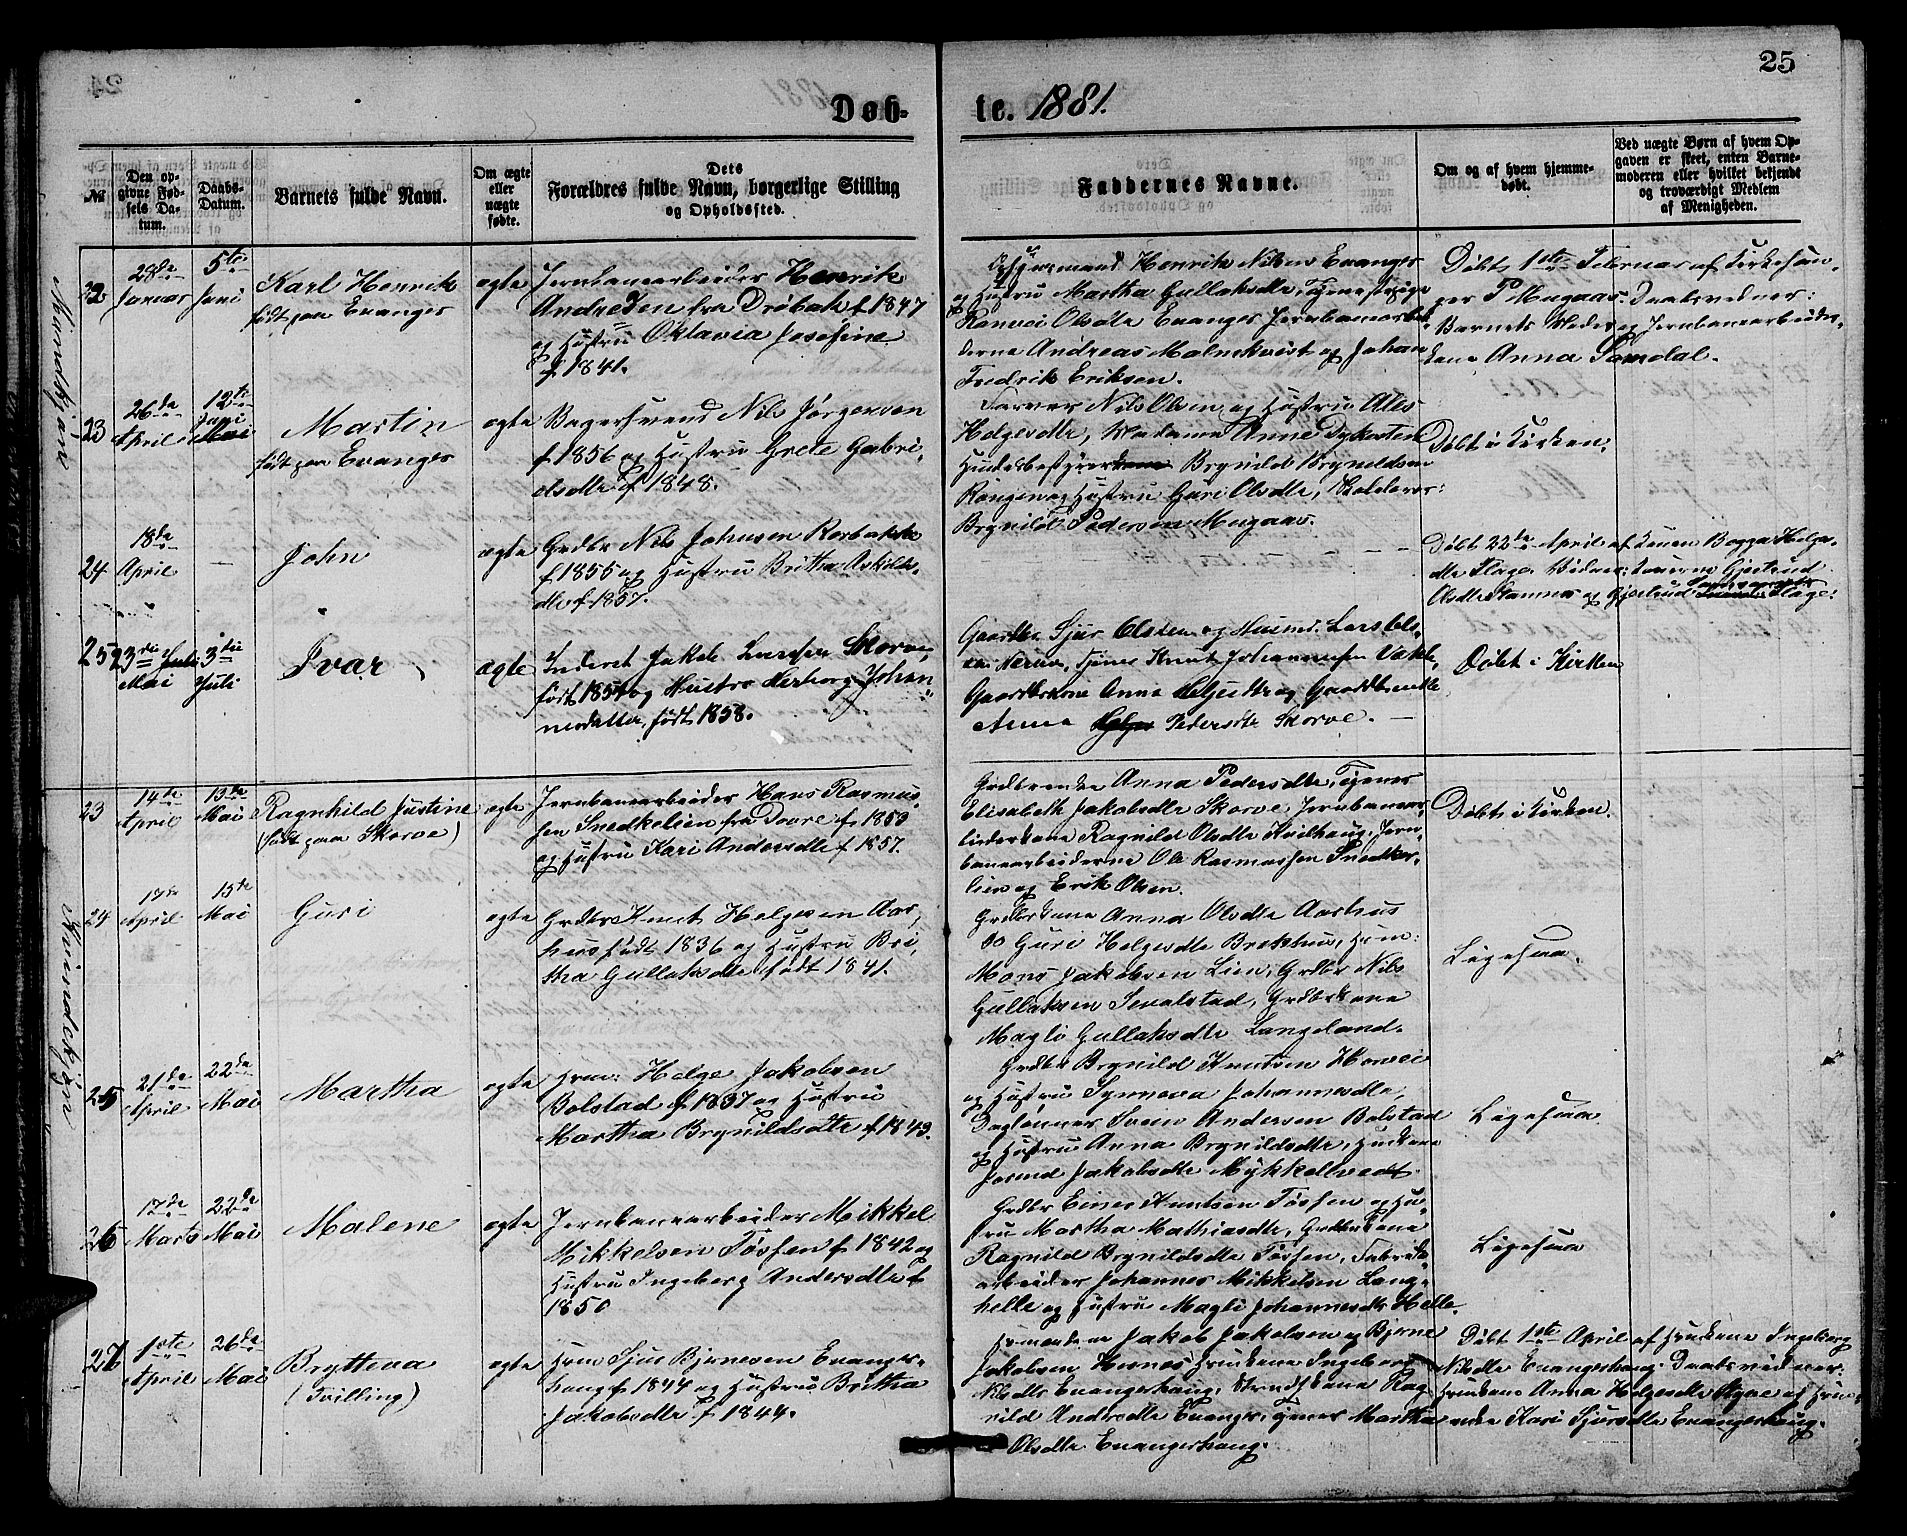 25
Døb-
te. 1881.
№
Den op-
givne Fød-
sels Da-
tum.
Daabs-
Datum.
Barnets fulde Navn.
Om ægte
eller
uægte
fødte.
Dets
Forældres fulde Navn, borgerlige Stilling
og Opholdssted.
Faddernes Navne.
Om og af hvem hjemme-
døbt.
Ved uægte Børn af hvem Op-
gaven er skeet, enten Barne-
moderen eller hvilket bekjendt
og troværdigt Medlem
af Menigheden.
Mandkjøn
22
28de
Januar
5te
Juni
Karl Henrik
født paa Evanger
ægte
Jernbanearbeider Henrik
Andresen fra Drøbak f 1847
og Hustru Oktavia Josefine
f 1841.
Henrik Nilsen Evanger
og Hustru Martha Gullaksdtr, Tjenestepige
Ranvei Olsdtr Evanger Jernbanearbei-
derne Andreas Malmkvist og Johan
Fredrik Eriksen.
Døbt 1ste Februar af Kirkesan-
ger P Mugaas. Daabsvidner:
Barnets Moder og Jernbanearbeider-
kone Anna Samdal.
23
26de
April
12te
Juni
Mai
Martin
født paa Evanger
ægte
Bagersvend Nils Jørgensen
f 1856 og Hustru Grete Gabri-
elsdtr f 1848.
Farver Nils Olsen og Hustru Ales
Helgesdtr, Madame Anne Dyksten
Brynild Bryneldsen
og Hustru Guri Olsdtr,
Brynild Pedersen Mugaas.
Døbt i Kirken.
24
18de
April
—
John
ægte
Grdbr Nils Johnsen Rasbakke
f 1855 og Hustru Britha Askilds-
dtr f 1857.
— — — —
Døbt 22de April af Konen Bagga Helge-
dtr Flage. Vidner: Konerne Gjertrud
Olsdtr Hamnes og Gjertrud Flage.
25
23de Juli
Mai
3die
Juli
Ivar
ægte
Inderst Jakob Larssen Skorve,
født 1854 og Hustro Herborg Johan-
nesdatter, født 1858.
Gaardbr. Sjur Olsen og Husmd. Lars Ols-
en Tjener Knut Johannessen
Gaardbrkone Anna og Gaardbrenke
Anna Pedersdtr Skorve. —
Døbt i Kirken
Kvindekjøn
23
14de
April
15de
Mai
Ragnhild Justine
(født paa Skorve)
ægte
Jernbanearbeider Hans Rasmus-
sen Snedkelien fra Dovre f 1850
og Hustru Kari Andersdtr f 1857.
Grdbrenke Anna Pedersdtr, Tjener
Elisabeth Jakobsdtr Skorve, Jernbanear-
biderkone Ragnild Olsdtr Kvilhaug. Jern-
banearbeiderne Ole Rasmussen Snedker-
lien og Erik Olsen.
Døbt i Kirken.
24
17de
April
15te
Mai
Guri
ægte
Grdbr Knut Helgesen Aar-
hus født 1836 og Hustru Bri-
tha Gullaksdtr født 1841.
Grdbrkone Anna Olsdtr Aarhus
Do Guri Helgesdtr Brekhus, Husm:
Mons Jakobsen Lien, Grdbr Nils
Gullaksen Sevalstad, Grdbrkone
Magli Gullaksdtr Langeland.
Ligesaa.
25
21de
April
22de
Mai
Martha
ægte
Husm: Helge Jakobsen
Bolstad f 1837 og Hustru
Martha Brynildsdtr f 1843.
Grdbr Brynild Knutsen Horvei
og Hustru Synneva Johannesdtr,
Daglønner Svein Andersen Bolstad
og Hustru Anna Brynildsdtr, Huskone
Jorund Jakobsdtr Mykkeltvedt.
Ligesaa.
26
17de
Marts
22de
Mai
Malene
ægte
Jernbanearbeider Mikkel
Mikkelsen Føssen f 1842 og
Hustru Ingeborg Andersdtr f
1850
Grdbr Einar Knutsen Føssen og Hu-
stru Martha Mathiasdtr, Grdbrkone
Ragnild Brynildsdtr Føssen, Fabrik-
arbeider Johannes Mikkelsen Lang-
helle og Hustru Magli Johannesdtr Helle.
Ligesaa
27
1ste
April
26de
Mai
Brytteva
(Tvilling)
ægte
Hum Sjur Bjørnesen Evanger-
haug f 1844 og Hustru Britha
Jakobsdtr f 1844.
Hmændene Jakob Jakobsen og Bjørne
Jakobsen Hernes Huskone Ingeborg
Nilsdtr Evangerhaug, Rag-
nild Andersdtr Evanger, Tjener Martha
Olsdtr Evangerhaug.
Døbt 1ste April af Huskone Ingeborg
Nilsdtr Evangerhaug. Daabsvidner:
Huskone Anna Helgesdtr
Kari Sjursdtr Evangerhaug.